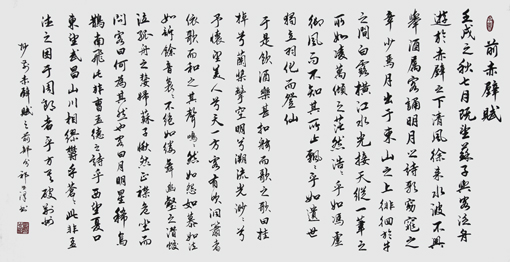 前赤壁賦
壬戌之秋七月既望蘇子與客泛舟
遊於赤壁之下清風徐來水波不興
舉酒属客誦明月之詩歌窈窕之
章少焉月出于東山之上徘徊於斗牛
之間白露橫江水光接天縱一葦之
所如凌萬頃之茫然浩浩乎如馮虛
御風而不知其所止飄飄乎如遺世
獨立羽化而登仙
于是飲酒樂甚扣舷而歌之歌曰桂
棹兮蘭槳擊空明兮溯流光渺渺兮
予懷望美人兮天一方客有吹洞簫者
依歌而和之其聲嗚嗚然如怨如慕如泣
如訴餘音裊裊不絕如縷舞幽壑之潛蛟
泣孤舟之嫠婦蘇子愀然正襟危坐而
問客曰何為其然也客曰月明星稀烏
鵲南飛此非曹孟德之詩乎西望夏口
東望武昌山川相繆鬱乎蒼蒼此非孟
德之困于周郎者乎方其破荊州
抄前赤壁賦之前部分